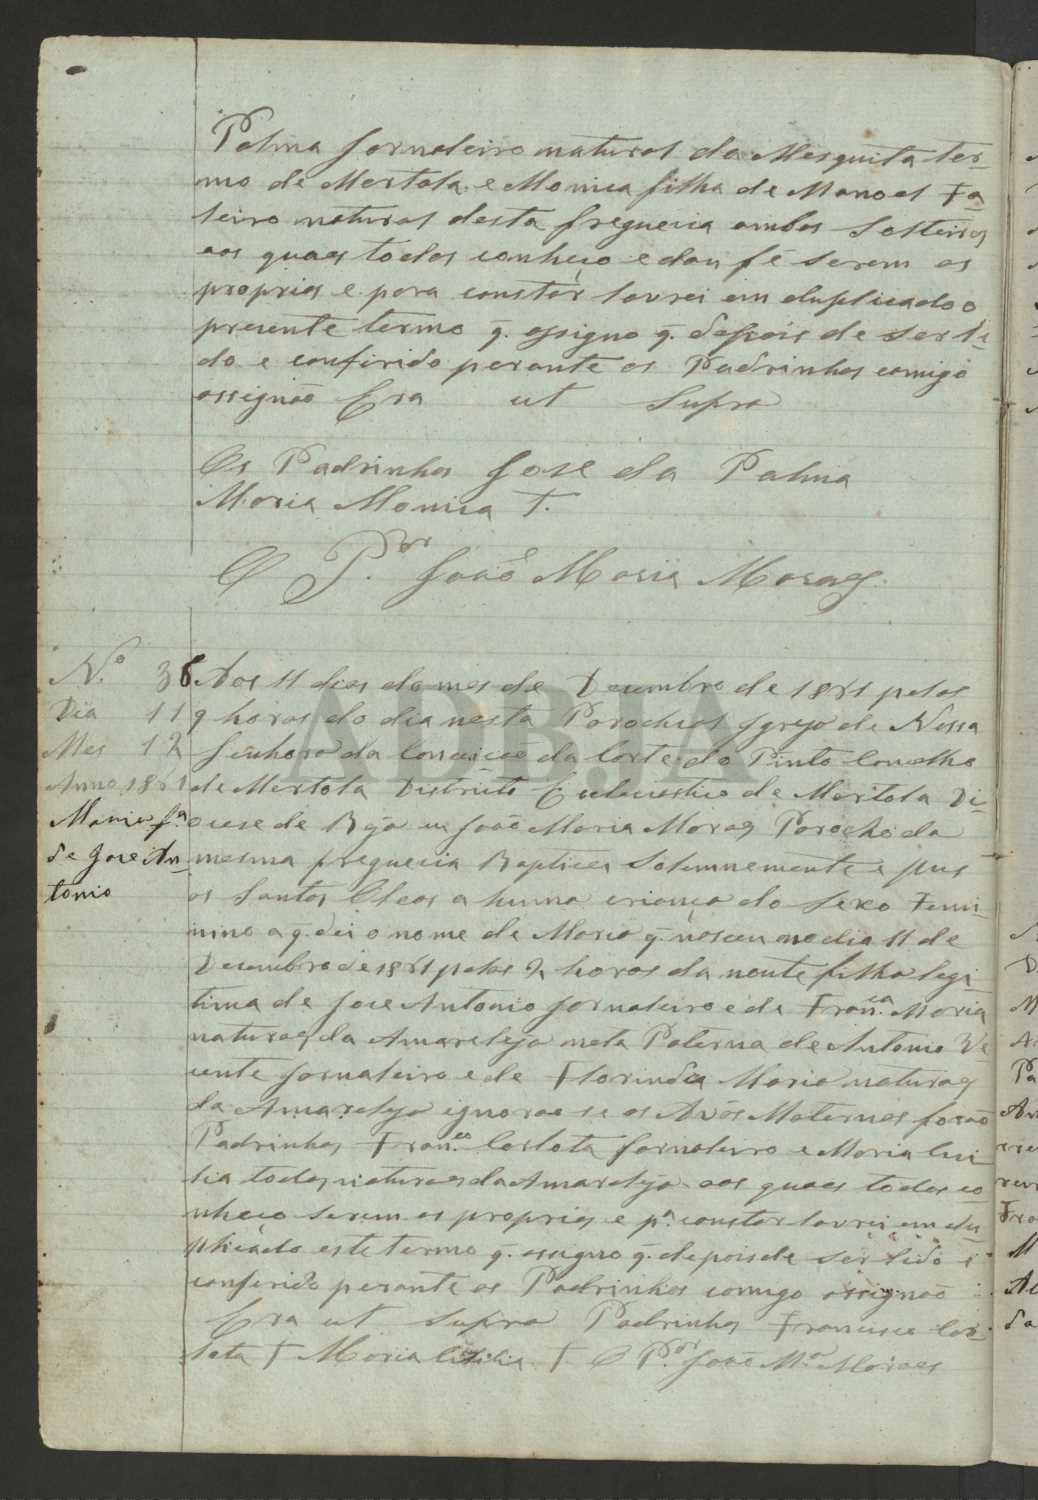 Palma Jornaleiro natural da Mesquita ter-
mo de Mertola e Monica filha de Manoel Fa-
leiro natural desta freguecia ambos Solteiros
aos quaes todos conheço e dou fé serem os
proprios e para constár lavrei em duplicado o
precente termo q. assigno q. depois de ser li-
do e conferido perante os Padrinhos comigo
assignaõ Era ut Supra
Os Padrinhos Jose da Palma
Maria Monica †.
O P.or Joaõ Maria Moraes
N.o 36 Aos 11 dias do mes de Decembro de 1861 pelas
Dia 11 9 horas do dia nesta Parochial Igreja de Nossa
Mes 12 Senhora da Conceicaõ da Corte do Pinto Concelho
Anno 1861 de Mertola Destrito Ecleciastico de Mertola Di-
Maria f.a ocese de Beja eu Joaõ Maria Moraes Parocho da
de Jose An- mesma freguecia Baptizei Solemnemente e pus
tonio os Santos Oleos a huma criança do Sexo Femi-
nino a q. dei o nome de Maria q. nasceu no dia 11 de
Decembro de 1861 pelas horas da noute filha legi-
tima de Jose Antonio Jornaleiro e de Fran.ca Maria
naturaes da Amareleja neta Paterna de Antonio Vi-
cente Jornaleiro e de Florinda Maria naturaes
da Amareleja ignorao se os Avós Maternos foraõ
Padrinhos Fran.co Carlota Jornaleiro e Maria Cici-
lia todos naturaes da Amareleja aos quaes todos co
nheço serem os proprios e p.a constar lavrei em du-
plicado este termo q. assigno q. depois de ser lido e
conferido perante os Padrinhos comigo assignaõ
Era ut supra Padrinhos Francisco Car-
lota † Maria Cicilia † O P.or Joaõ M.a Moraes
ADBJA